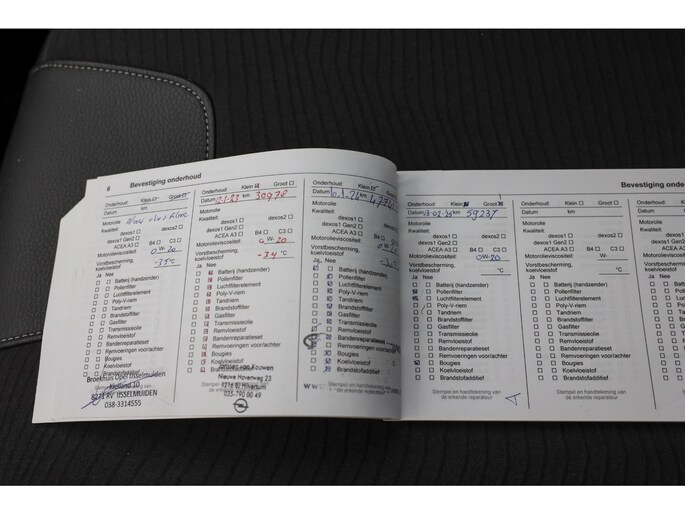 6
Bevestiging onderhoud
Onderhoud: Klein Groot
Datum km
Motorolie
Kwaliteit:
dexos1 dexos2
dexos1 Gen2
ACEA A3 B4 C3
Motorolieviscositeit: 0 W- 20
Vorstbescherming,
koelvloeistof
-35°C
Ja Nee
Batterij (handzender)
Pollenfilter
Luchtfilterelement
Poly-V-riem
Tandriem
Brandstoffilter
Gasfilter
Transmissieolie
Remvloeistof
Bandenreparatieset
Remvoeringen voor/achter
Bougies
Koelvloeistof
Broekhuis Opel IJsselmuiden
8271 RV IJSSELMUIDEN
038-3314555
Onderhoud: Klein Groot
Datum 12-1-23 km 30978
Motorolie
Kwaliteit:
dexos1 dexos2
dexos1 Gen2
ACEA A3 B4 C3
Motorolieviscositeit: 0 W- 20
Vorstbescherming,
koelvloeistof -34 °C
Ja Nee
Batterij (handzender)
Pollenfilter
Luchtfilterelement
Poly-V-riem
Tandriem
Brandstoffilter
Gasfilter
Transmissieolie
Remvloeistof
Bandenreparatieset
Remvoeringen voor/achter
Bougies
Koelvloeistof
Janssen van Kouwen
Nieuwe Havenweg 23
Hilversum
035-790 00 49
Onderhoud: Klein Groot
Datum km
Motorolie
Kwaliteit:
dexos1 dexos2
dexos1 Gen2
ACEA A3 B4 C3
Motorolieviscositeit: 0 W-
Vorstbescherming,
koelvloeistof
Ja Nee
Batterij (handzender)
Pollenfilter
Luchtfilterelement
Poly-V-riem
Tandriem
Brandstoffilter
Gasfilter
Transmissieolie
Remvloeistof
Bandenreparatieset
Remvoeringen voor/achter
Bougies
Koelvloeistof
Brandstofadditief
Stempel en handtekening van
de erkende reparateur
Bevestiging onder
Onderhoud: Klein Groot
Datum 13-02-25 km 59237
Motorolie
Kwaliteit:
dexos1 dexos2
dexos1 Gen2
ACEA A3 B4 C3
Motorolieviscositeit: 0 W- 20
Vorstbescherming,
koelvloeistof °C
Ja Nee
Batterij (handzender)
Pollenfilter
Luchtfilterelement
Poly-V-riem
Tandriem
Brandstoffilter
Gasfilter
Transmissieolie
Remvloeistof
Bandenreparatieset
Remvoeringen voor/achter
Bougies
Koelvloeistof
Brandstofadditief
Stempel en handtekening van
de erkende reparateur
Onderhoud: Klein Groot
Datum km
Motorolie
Kwaliteit:
dexos1 dexos2
dexos1 Gen2
ACEA A3 B4 C3
Motorolieviscositeit: W-
Vorstbescherming,
koelvloeistof °C
Ja Nee
Batterij (handzender)
Pollenfilter
Luchtfilterelement
Poly-V-riem
Tandriem
Brandstoffilter
Gasfilter
Transmissieolie
Remvloeistof
Bandenreparatieset
Remvoeringen voor/achter
Bougies
Koelvloeistof
Brandstofadditief
Stempel en handtekening van
de erkende reparateur
Onderh
Datum
Motorol
Kwalite
Motorol
Vorstbe
koelvloe
Ja Nee